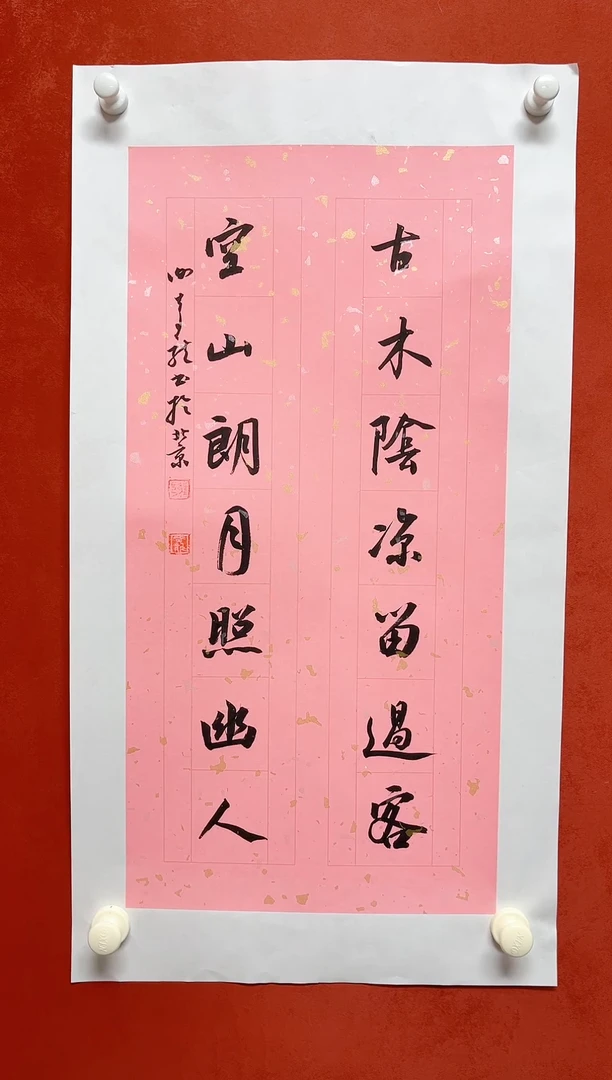 古木陰凉留過客
空山朗月照幽人
书於北京